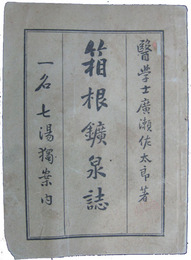 醫學士廣瀨佐太郎著
箱根鑛泉誌
一名七湯獨案内